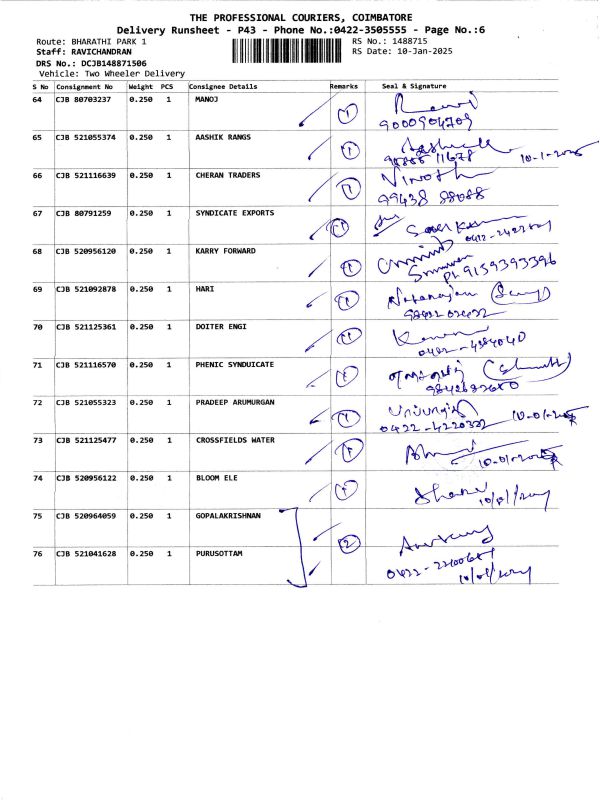 THE PROFESSIONAL COURIERS, COIMBATORE
Delivery Runsheet - P43 - Phone No.:0422-3505555 - Page No.:6
Route: BHARATHI PARK 1 RS No.: 1488715
Staff: RAVICHANDRAN RS Date: 10-Jan-2025
DRS No.: DCJB148871506
Vehicle: Two Wheeler Delivery
S No Consignment No Weight PCS Consignee Details Remarks Seal & Signature
64 CJB 80703237 0.250 1 MANOJ 1
9000904709
65 CJB 521055374 0.250 1 AASHIK RANGS 1
11678 10-1-2025
66 CJB 521116639 0.250 1 CHERAN TRADERS 1 Vinoth
99438 88088
67 CJB 80791259 0.250 1 SYNDICATE EXPORTS 1
68 CJB 520956120 0.250 1 KARRY FORWARD 1
Ph 9159393396
69 CJB 521092878 0.250 1 HARI 1 Natarajan
70 CJB 521125361 0.250 1 DOITER ENGI 1
0422-4384040
71 CJB 521116570 0.250 1 PHENIC SYNDUICATE 1
72 CJB 521055323 0.250 1 PRADEEP ARUMURGAN 1
0422-4220332
73 CJB 521125477 0.250 1 CROSSFIELDS WATER 1
10-01-2025
74 CJB 520956122 0.250 1 BLOOM ELE 1
75 CJB 520964059 0.250 1 GOPALAKRISHNAN
2
76 CJB 521041628 0.250 1 PURUSOTTAM